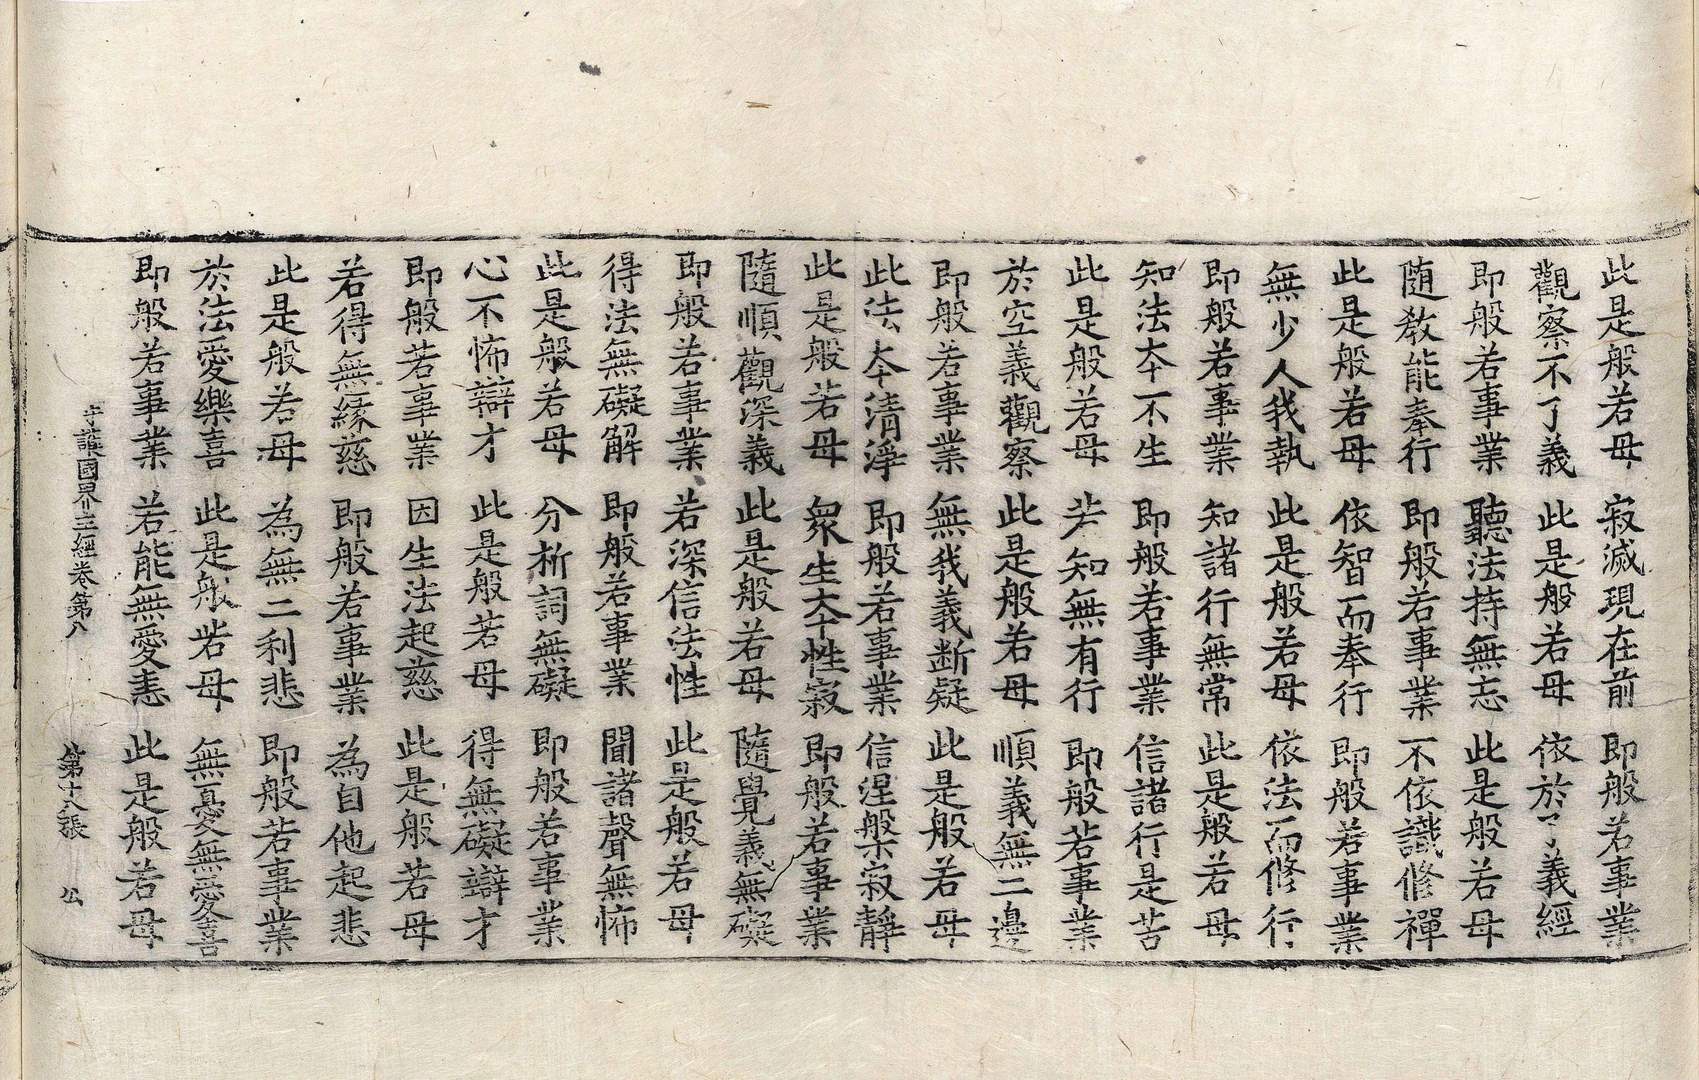 此是般若母 寂滅現在前 即般若事業
觀察不了義 此是般若母 依於了義經
即般若事業 聽法持無忘 此是般若母
随教能奉行 即般若事業 不依識修禪
此是般若母 依智而奉行 即般若事業
無少人我執 此是般若母 依法而修行
即般若事業 知諸行無常 此是般若母
知法夲不生 即般若事業 信諸行是苦
此是般若母 若知無有行 即般若事業
於空義觀察 此是般若母 順義無二邊
即般若事業 無我義断疑 此是般若母
此法夲清淨 即般若事業 信涅槃寂静
此是般若母 衆生夲性寂 即般若事業
隨順觀深義 此是般若母 隨覺義無礙
即般若事業 若深信法性 此是般若母
得法無礙解 即般若事業 聞諸聲無怖
此是般若母 分析詞無礙 即般若事業
心不怖辯才 此是般若母 得無礙辯才
即般若事業 因生法起慈 此是般若母
若得無緣慈 即般若事業 為自他起悲
此是般若母 為無二利悲 即般若事業
於法愛樂喜 此是般若母 無憂無愛喜
即般若事業 若能無愛恚 此是般若母
守護國界主經卷第八 第十八張 公